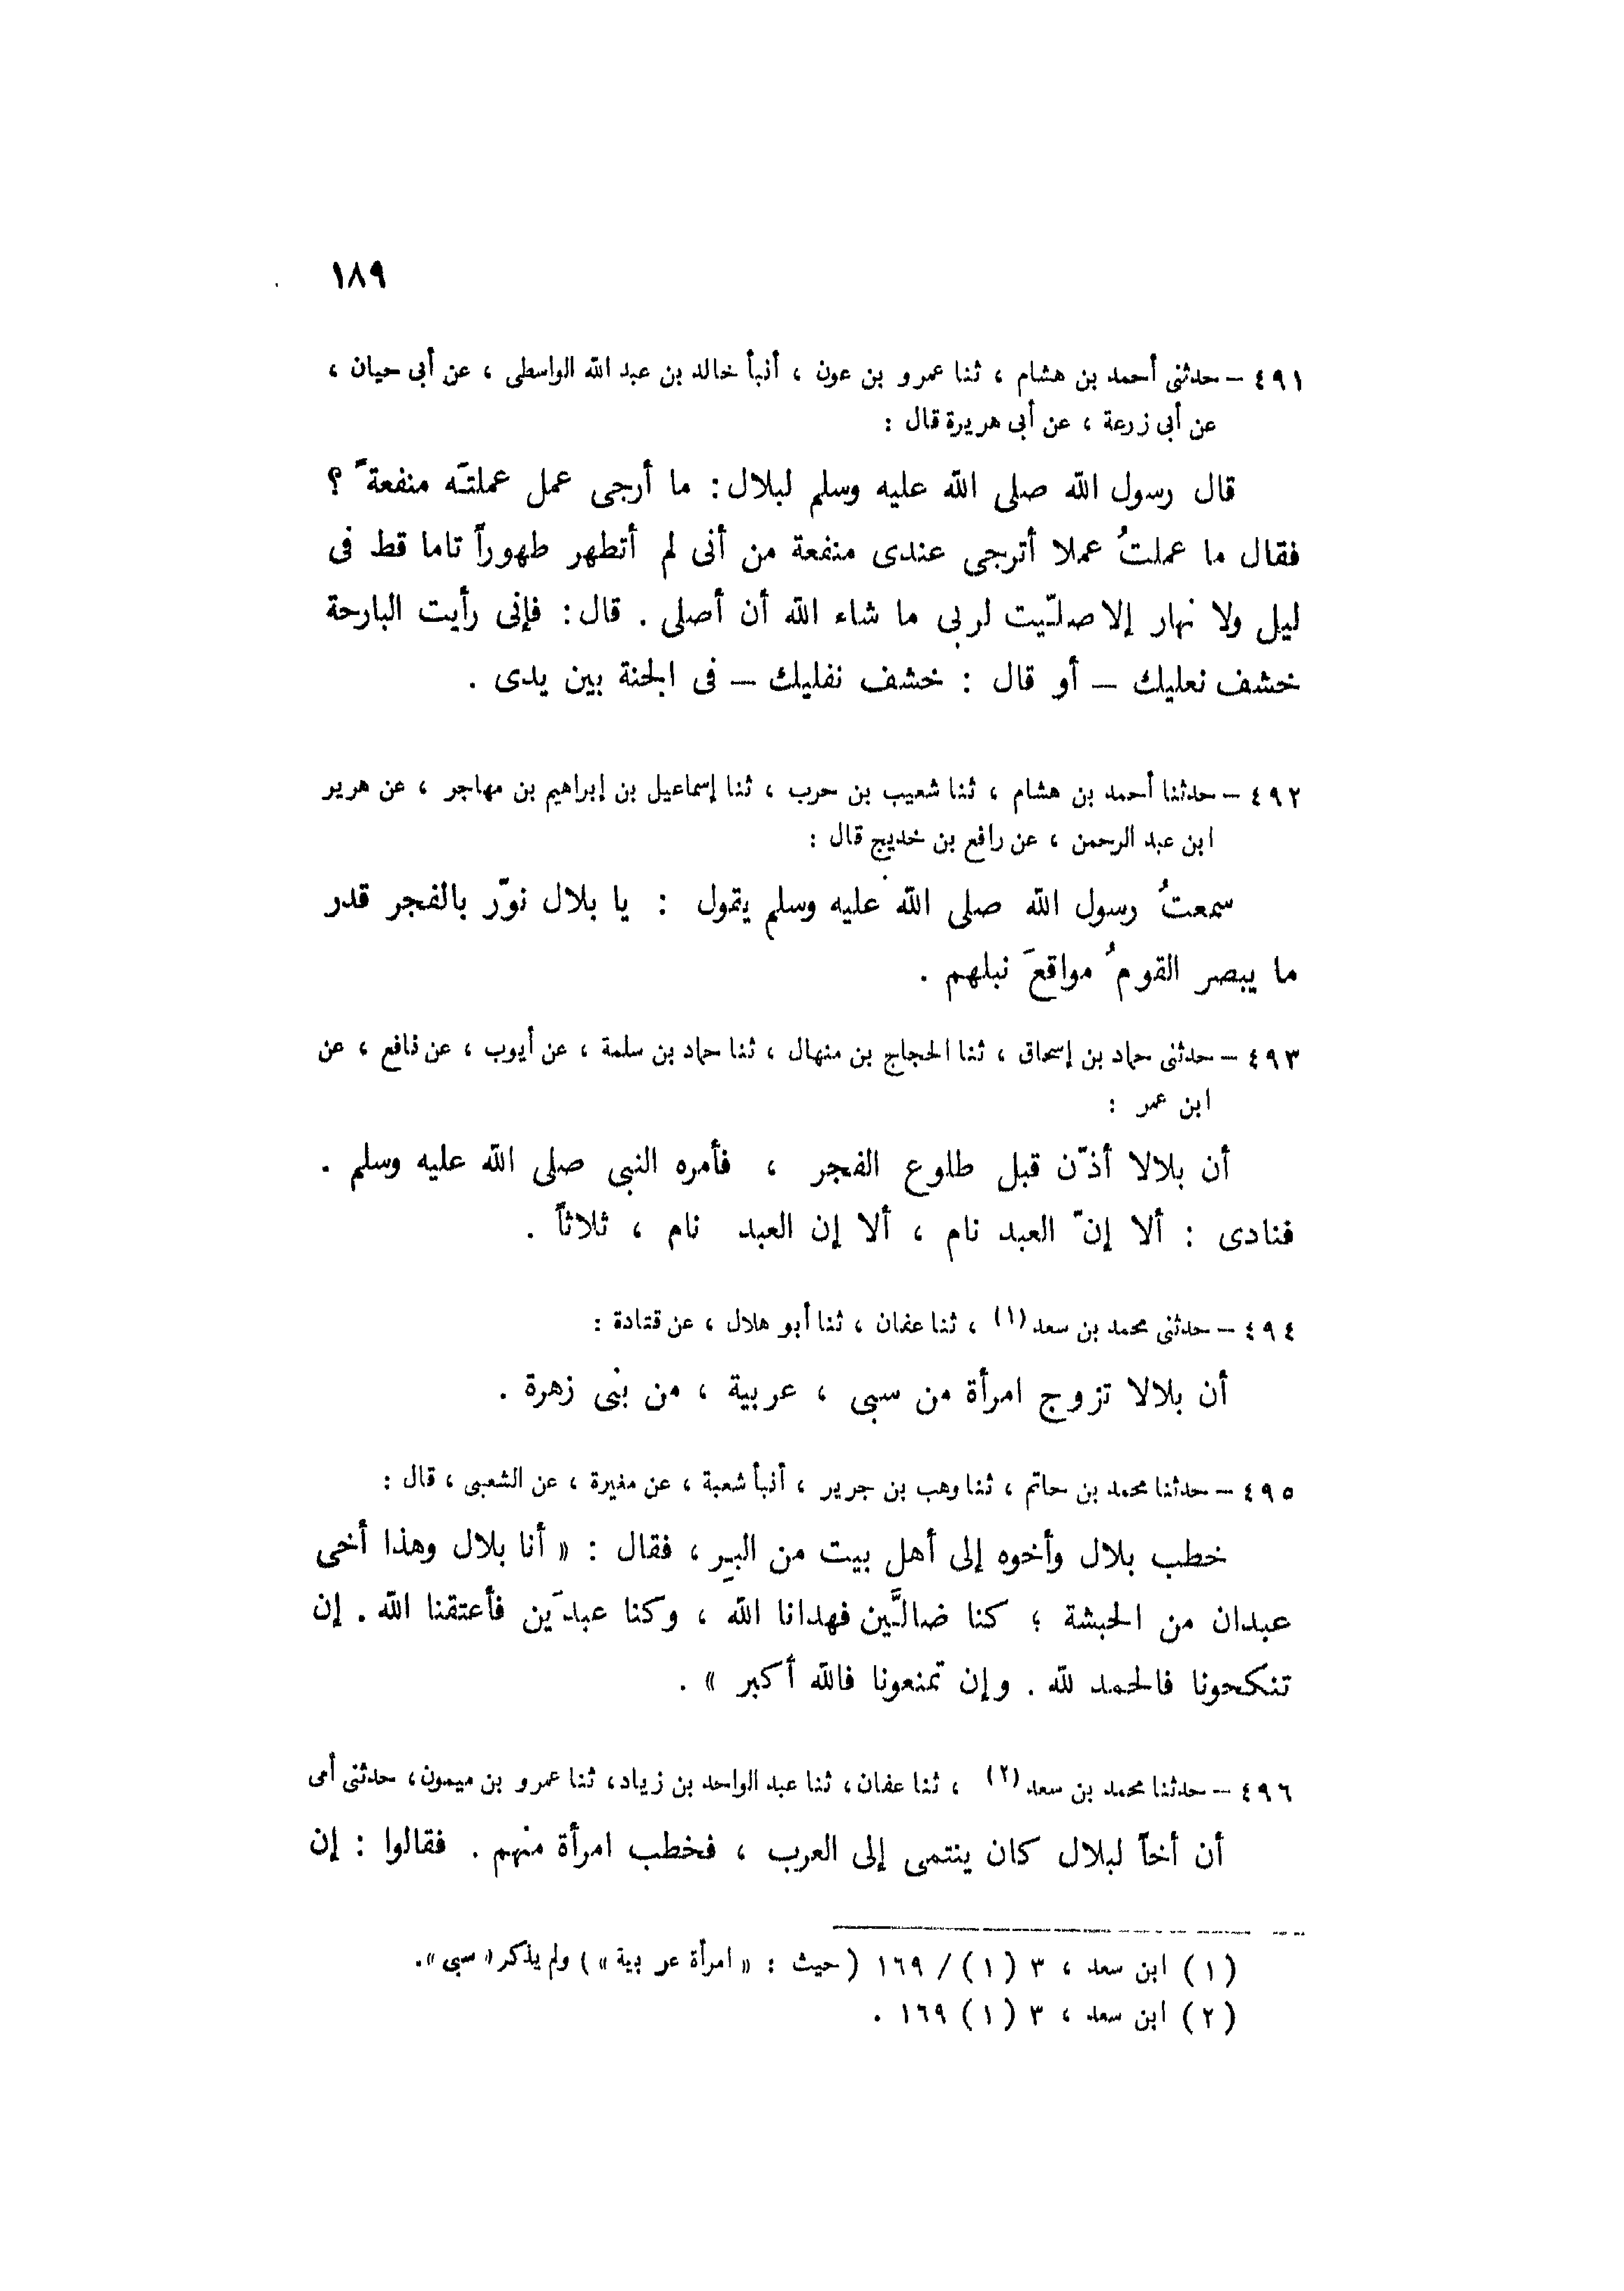 ١٨٩
٤٩١ – حدثنى أحمد بن هشام ، ثنا عمرو بن عون ، أنبأ خالد بن عبد الله الواسطى ، عن أبى حيان ،
عن أبى زرعة ، عن أبى هريرة قال :
قال رسول الله صلى الله عليه وسلم لبلال : ما أرجى عمل عملتَه منفعةً ؟
فقال ما عملتُ عملا أترجى عندى منفعة من أنى لم أتطهر طهوراً تاما قط فى
ليل ولا نهار إلا صلّيت لربى ما شاء الله أن أصلى . قال : فإنى رأيت البارحة
خشف نعليك – أو قال : خشف نفليك – فى الجنة بين يدى .
٤٩٢ – حدثنا أحمد بن هشام ، ثنا شعيب بن حرب ، ثنا إسماعيل بن إبراهيم بن مهاجر ، عن هرير
ابن عبد الرحمن ، عن رافع بن خديج قال :
سمعتُ رسول الله صلى الله عليه وسلم يقول : يا بلال نوّر بالفجر قدر
ما يبصر القومُ مواقعَ نبلهم .
٤٩٣ – حدثنى حماد بن إسحاق ، ثنا الحجاج بن منهال ، ثنا حماد بن سلمة ، عن أيوب ، عن نافع ، عن
ابن عمر :
أن بلالا أذّن قبل طلوع الفجر ، فأمره النبى صلى الله عليه وسلم .
فنادى : ألا إنّ العبد نام ، ألا إن العبد نام ، ثلاثاً .
٤٩٤ – حدثنى محمد بن سعد (١) ، ثنا عفان ، ثنا أبو هلال ، عن قتادة :
أن بلالا تزوج امرأة من سبى ، عربية ، من بنى زهرة .
٤٩٥ – حدثنا محمد بن حاتم ، ثنا وهب بن جرير ، أنبأ شعبة ، عن مغيرة ، عن الشعبى ، قال :
خطب بلال وأخوه إلى أهل بيت من البرِ ، فقال : « أنا بلال وهذا أخى
عبدان من الحبشة ؛ كنا ضالَّين فهدانا الله ، وكنا عبدَين فأعتقنا الله . إن
تنكحونا فالحمد لله . وإن تمنعونا فالله أكبر » .
٤٩٦ – حدثنا محمد بن سعد (٢) ، ثنا عفان ، ثنا عبد الواحد بن زياد ، ثنا عمرو بن ميمون ، حدثنى أمى
أن أخاً لبلال كان ينتمى إلى العرب ، فخطب امرأة منهم . فقالوا : إن
(١) ابن سعد ، ٣ (١) / ١٦٩ (حيث : « امرأة عربية ») ولم يذكر « سبى ».
(٢) ابن سعد ، ٣ (١) ١٦٩ .